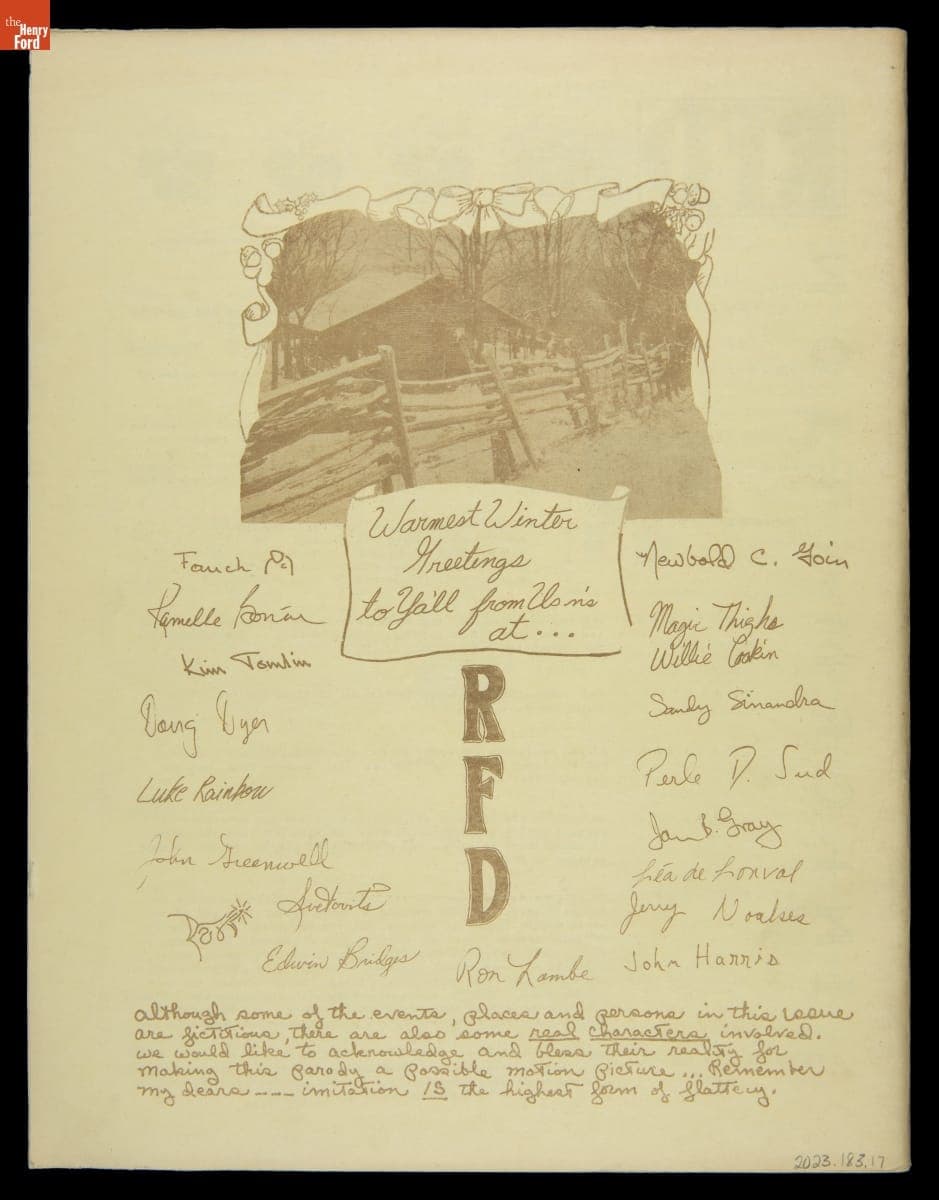 the
Henry
Ford
Warmest Winter
Greetings
to Ya'll from Us n's
at...
RFD
Kim Tomlin
Doug Dyer
Luke Rainbow
John Greenwell
Edwin Bridges
Ron Lambe
Newbold C. Goin
Magic Thighs
Willie Cookin
Sandy Sinandra
Perle D. Sud
Jan B. Gray
Léa de Lonval
Jerry
John Harris
although some of the events, places and persons in this issue
are fictitious, there are also some real characters involved.
we would like to acknowledge and bless their reality for
making this parody a possible motion picture... Remember
my dears --- imitation IS the highest form of flattery.
2023.183.17